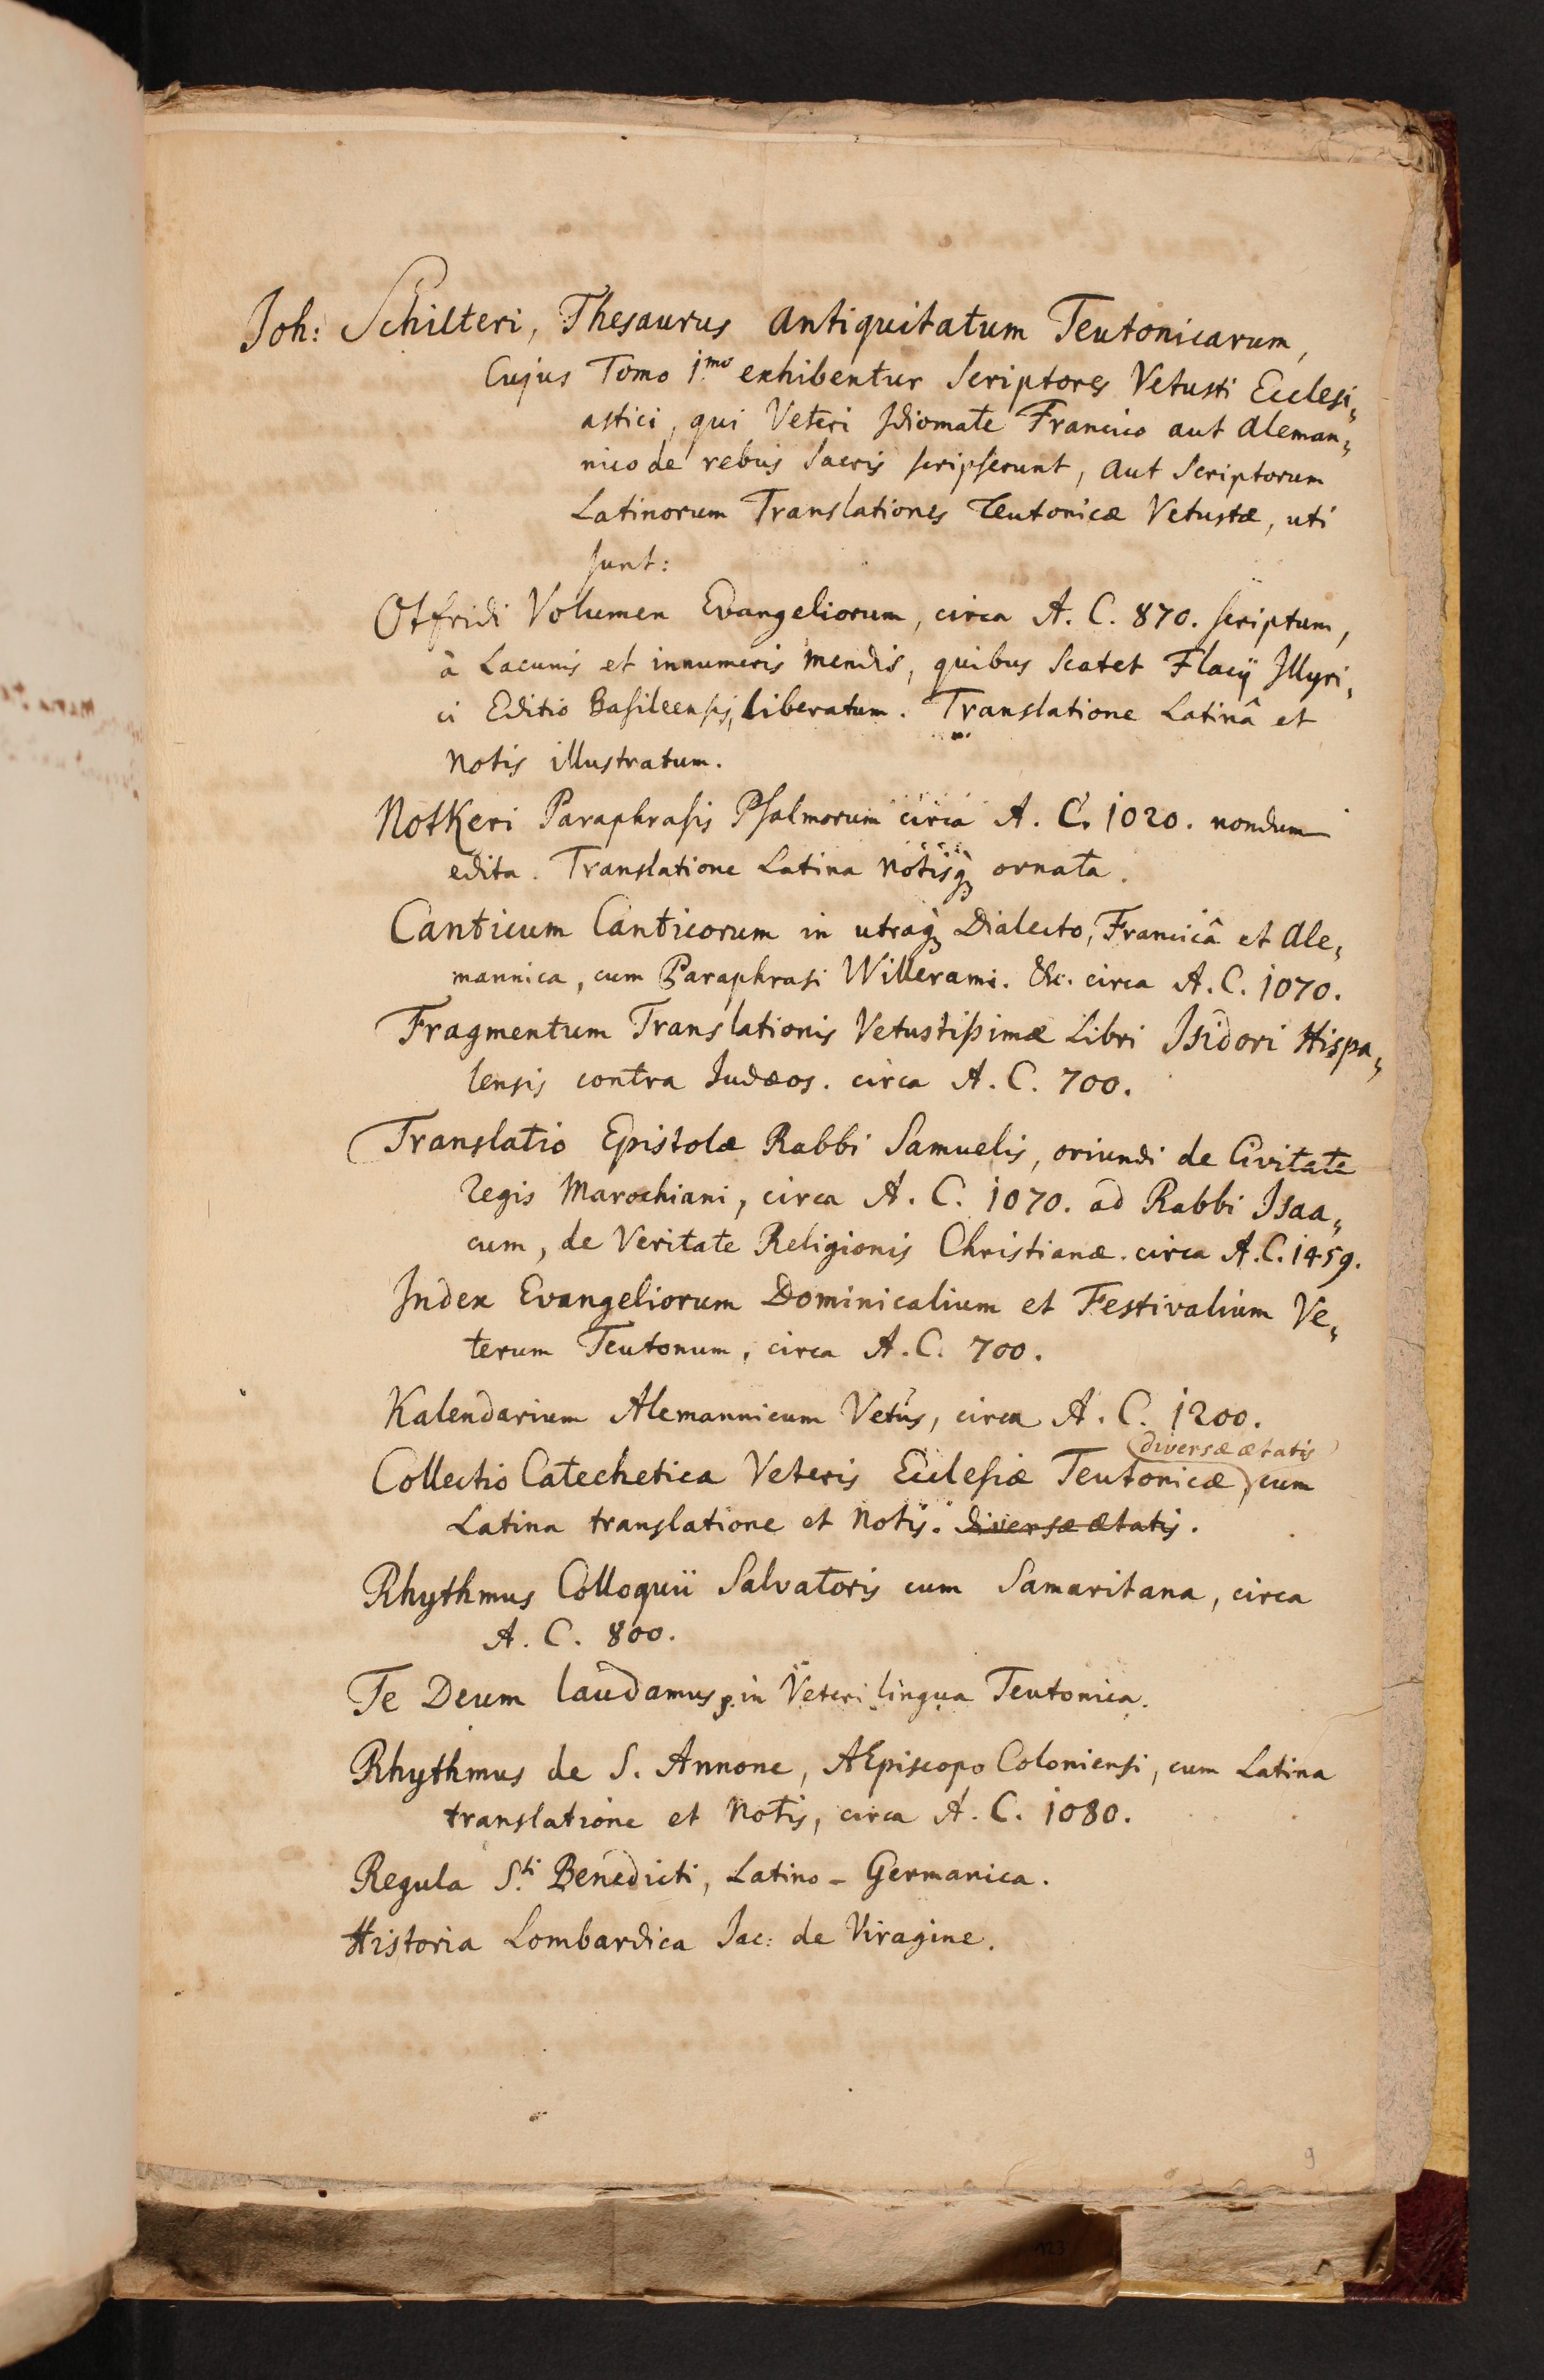 Joh: Schilteri, Thesaurus Antiquitatum Teutonicarum,
Cujus Tomo 1.mo exhibentur Scriptores Vetusti Ecclesi„
astici, qui Veteri Idiomate Francico aut Aleman„
nico de rebus Sacris scripserunt, aut Scriptorum
Latinorum Translationes Teutonicæ Vetustæ, uti
sunt:
Otfridi Volumen Evangeliorum, circa A. C. 870. scriptum,
à Lacunis et innumeris mendis, quibus Scatet Flacij Illyri„
ci Editio Basileensis, liberatum. Translatione Latinâ et
Notis illustratum.
Notkeri Paraphrasis Psalmorum circa A. C. 1020. nondum
edita. Translatione Latina Notisq; ornata.
Canticum Canticorum in utraq; Dialecto, Francicâ et Ale„
mannica, cum Paraphrasi Willerami. &c. circa A. C. 1070.
Fragmentum Translationis Vetustißimæ Libri Isidori Hispa„
lensis contra Judæos. circa A. C. 700.
Translatio Epistolæ Rabbi Samuelis, oriundi de Civitate
Regis Marochiani, circa A. C. 1070. ad Rabbi Isaa„
cum, de Veritate Religionis Christianæ. circa A. C. 1459.
Index Evangeliorum Dominicalium et Festivalium Ve„
terum Teutonum, circa A. C. 700.
Kalendarium Alemannicum Vetus, circa A. C. 1200.
(diversæ ætatis)
Collectio Catechetica Veteris Ecclesiæ Teutonicæ, cum
Latina translatione et Notis. diversæ ætatis.
Rhythmus Colloquii Salvatoris cum Samaritana, circa
A. C. 800.
Te Deum laudamus, in Veteri lingua Teutonica.
Rhythmus de S. Annone, AEpiscopo Coloniensi, cum Latina
translatione et Notis, circa A. C. 1080.
Regula S.ti Benedicti, Latino-Germanica.
Historia Lombardica Jac: de Viragine.
9
123